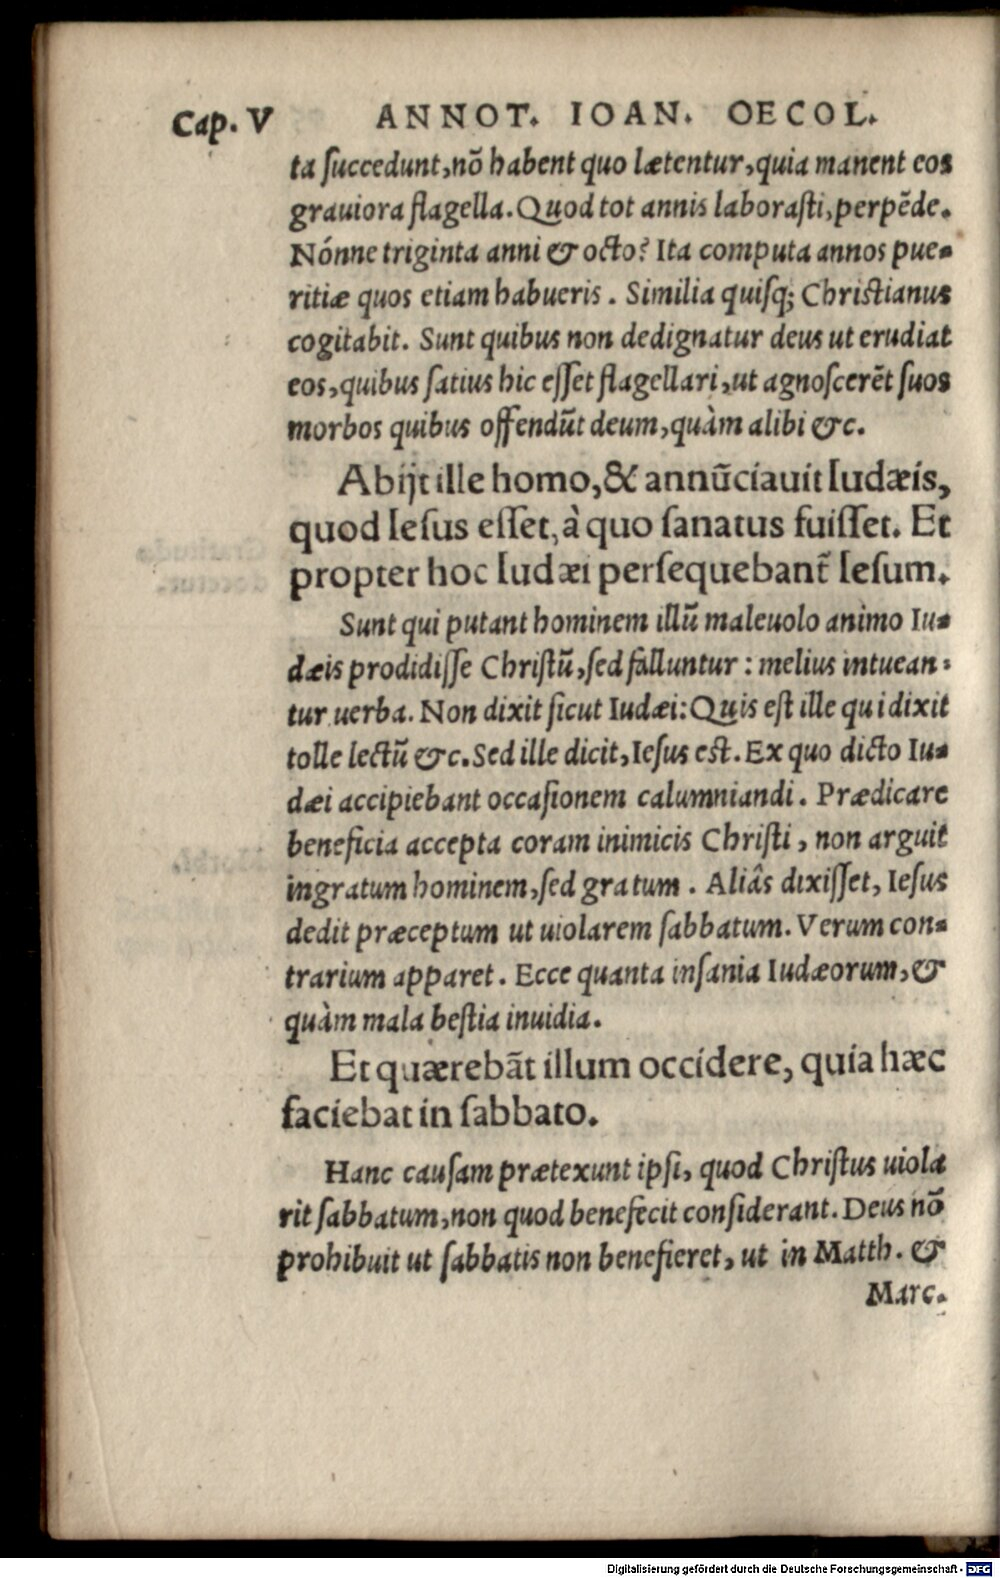 Cap. V ANNOT. IOAN. OECOL.
ta ſuccedunt, nõ habent quo lætentur, quia manent eos
grauiora flagella. Quod tot annis laboraſti, perpẽde.
Nónne triginta anni & octo? Ita computa annos pue-
ritiæ quos etiam habueris. Similia quiſq; Chriſtianus
cogitabit. Sunt quibus non dedignatur deus ut erudiat
eos, quibus ſatius hic eſſet flagellari, ut agnoſcerẽt ſuos
morbos quibus offendũt deum, quàm alibi &c.
Abijt ille homo, & annũciauit Iudæis,
quod Ieſus eſſet, à quo ſanatus fuiſſet. Et
propter hoc Iudæi perſequebant̃ Ieſum.
Sunt qui putant hominem illũ maleuolo animo Iu-
dæis prodidiſſe Chriſtũ, ſed falluntur: melius intuean-
tur uerba. Non dixit ſicut Iudæi: Quis eſt ille qui dixit
tolle lectũ &c. Sed ille dicit, Ieſus eſt. Ex quo dicto Iu-
dæi accipiebant occaſionem calumniandi. Prædicare
beneficia accepta coram inimicis Chriſti, non arguit
ingratum hominem, ſed gratum. Aliâs dixiſſet, Ieſus
dedit præceptum ut uiolarem ſabbatum. Verum con-
trarium apparet. Ecce quanta inſania Iudæorum, &
quàm mala beſtia inuidia.
Et quærebãt illum occidere, quia hæc
faciebat in ſabbato.
Hanc cauſam prætexunt ipſi, quod Chriſtus uiola
rit ſabbatum, non quod benefecit conſiderant. Deus nõ
prohibuit ut ſabbatis non benefieret, ut in Matth. &
Marc.
Digitalisierung gefördert durch die Deutsche Forschungsgemeinschaft - DFG